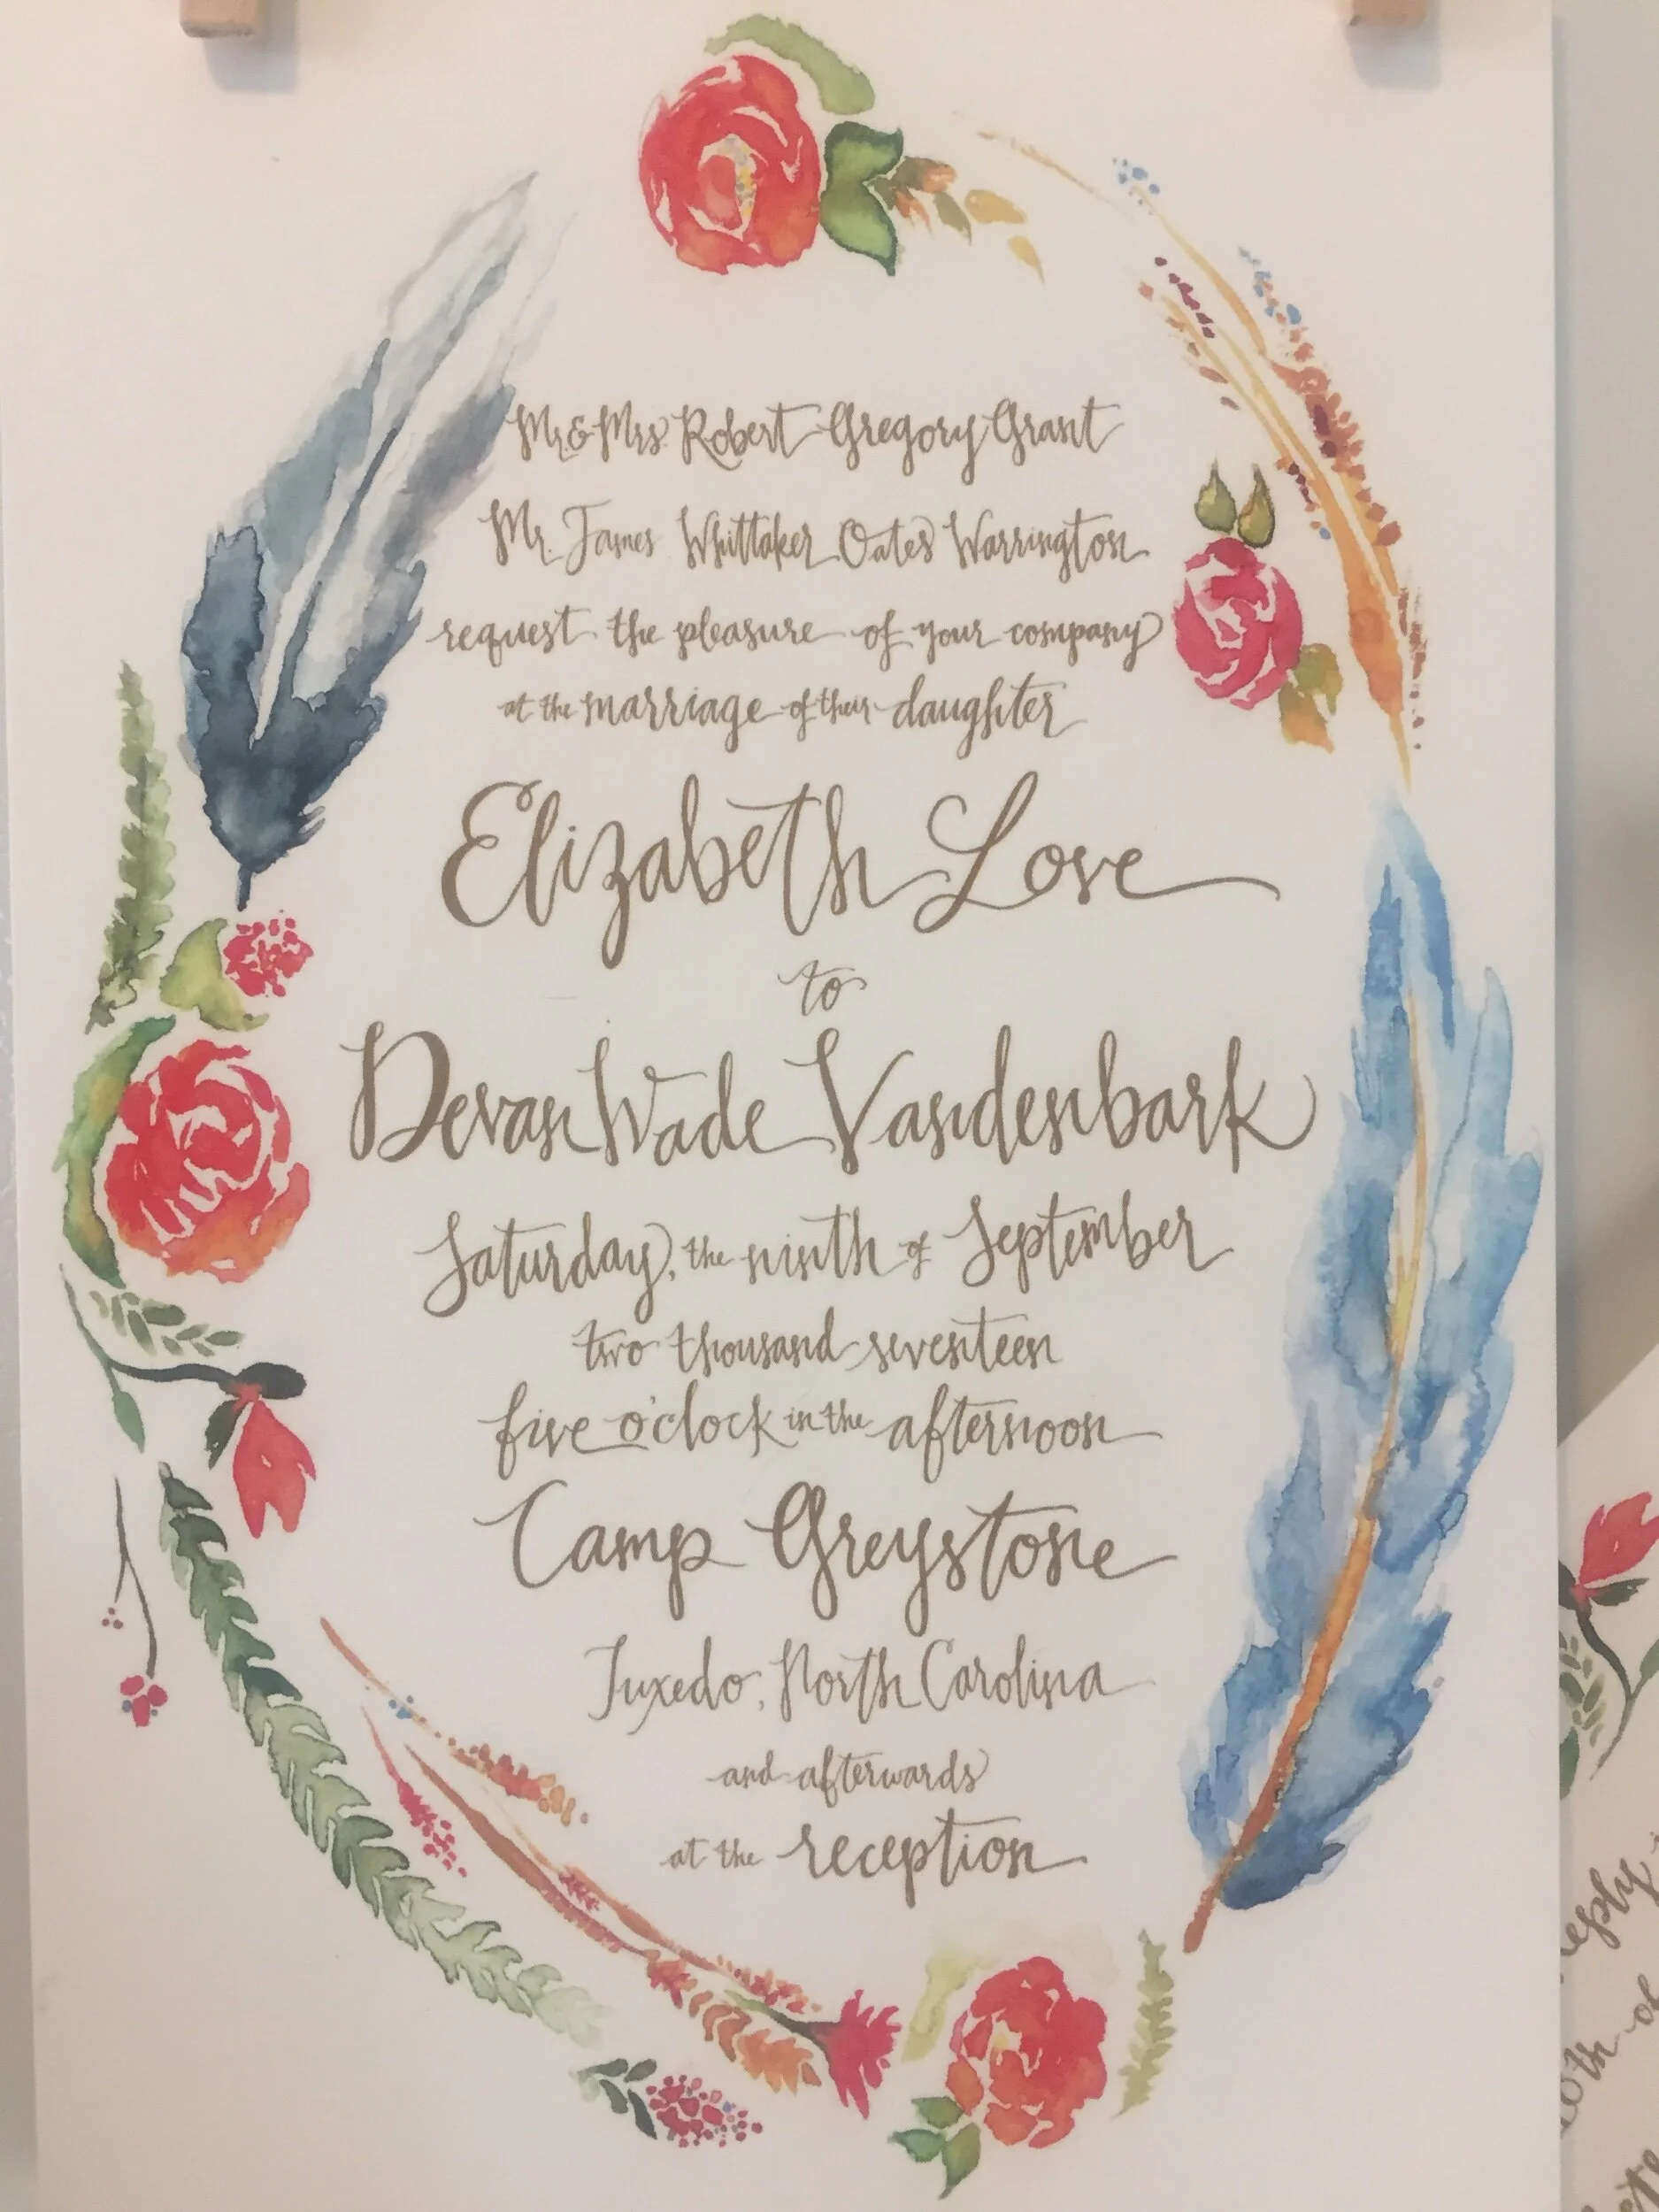 Mr. & Mrs. Robert Gregory Grant
Mr. James Whittaker Oates Warrington
request the pleasure of your company
at the marriage of their daughter
Elizabeth Love
to
Devan Wade Vandenbark
Saturday, the ninth of September
two thousand seventeen
five o'clock in the afternoon
Camp Greystone
Tuxedo, North Carolina
and afterwards
at the reception
reply
of